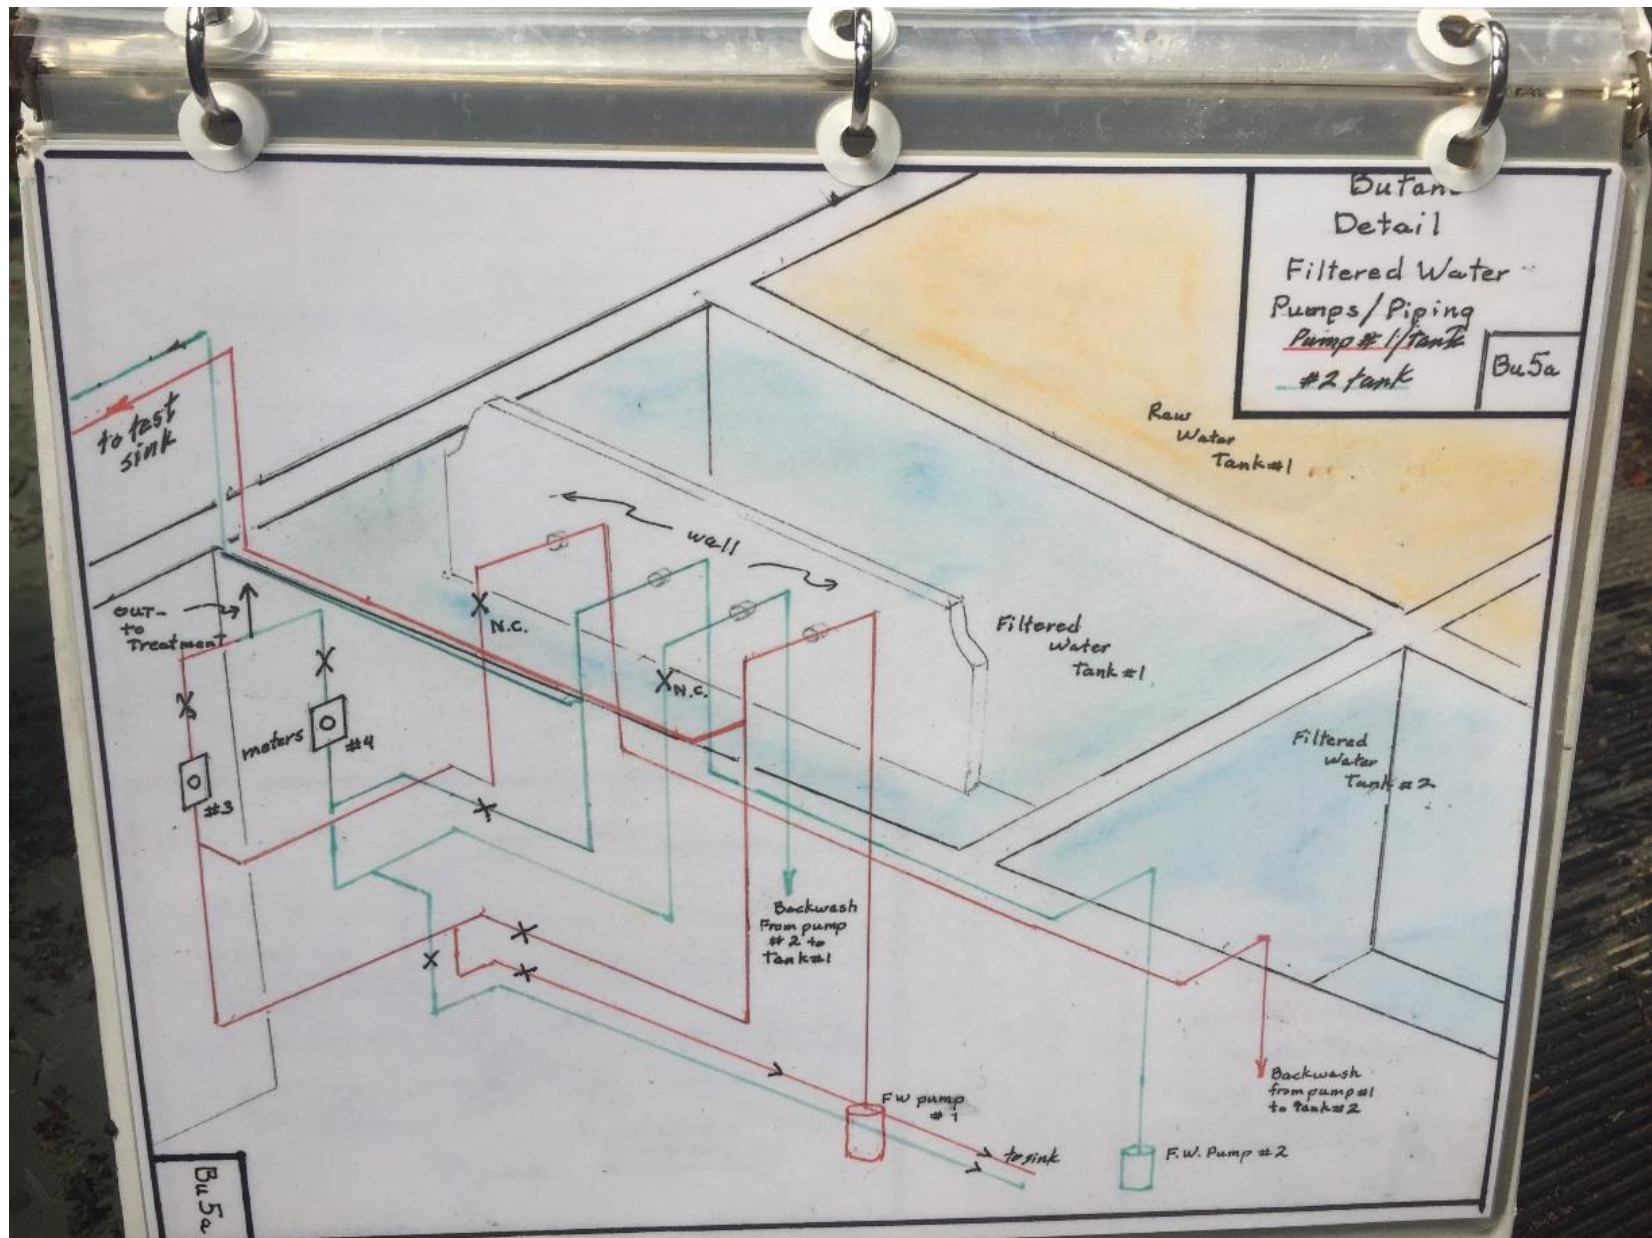 Butan
Detail
Filtered Water
Pumps/Piping
Pump #1/tank
#2 tank
Bu5a
Raw
Water
Tank #1
to test
sink
wall
N.C.
N.C.
OUT-
to
Treatment
meters
#4
#3
Filtered
Water
Tank #1
Filtered
Water
Tank #2
Backwash
From pump
#2 to
Tank #1
FW pump
#1
to sink
F.W. Pump #2
Backwash
from pump #1
to Tank #2
Bu5a